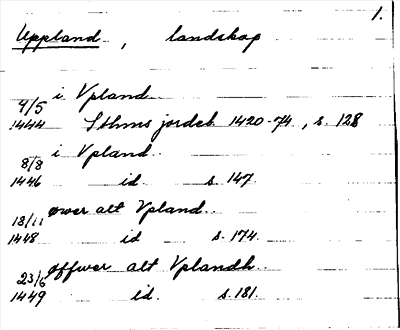 1.
Uppland, landskap
4/5 i Vpland
1444 Sthms jordeb. 1420-74, s. 128
8/8 i Vpland.
1446 id. s. 147.
13/11 øwer alt Vpland.
1448 id. s. 174.
23/6 offwer alt Vplandh
1449 id. s. 181.